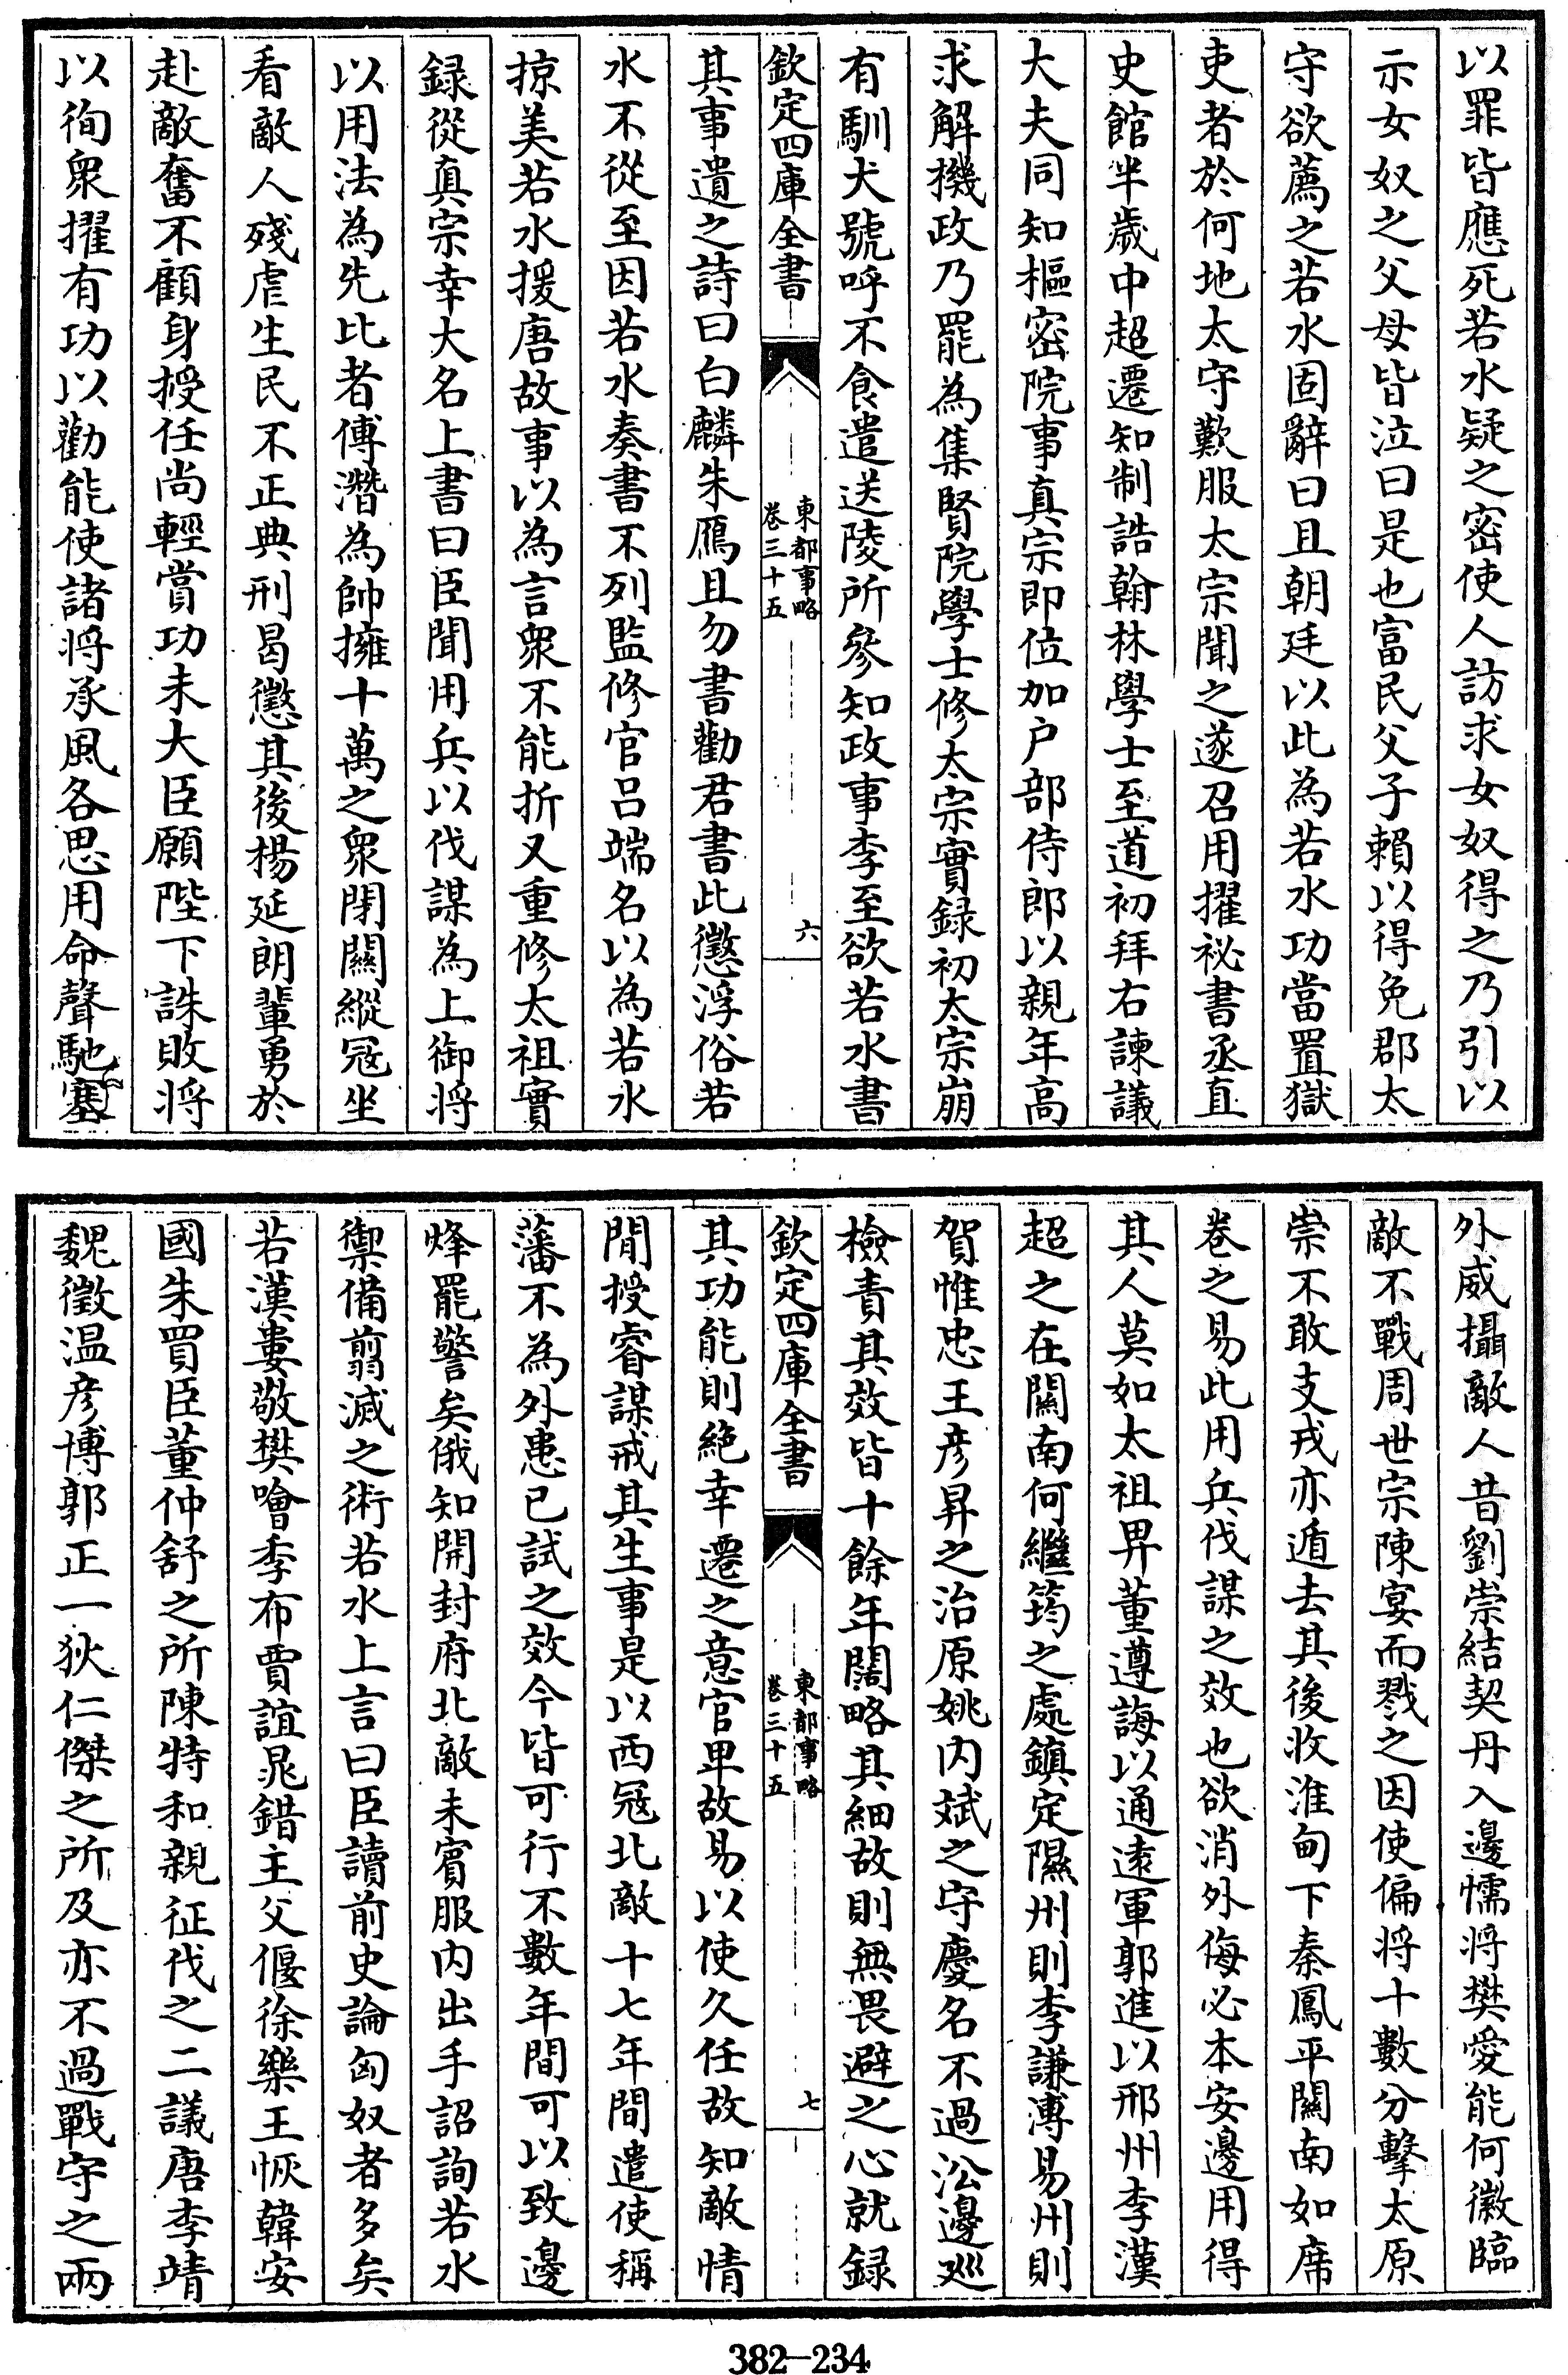 以罪皆應死若水疑之密使人訪求女奴得之乃引以
示女奴之父母皆泣曰是也富民父子賴以得免郡太
守欲薦之若水固辭曰且朝廷以此為若水功當置獄
吏者於何地太守歎服太宗聞之遂召用擢祕書丞直
史館半歲中超遷知制誥翰林學士至道初拜右諫議
大夫同知樞密院事真宗即位加户部侍郎以親年高
求解機政乃罷為集賢院學士修太宗實録初太宗崩
有馴犬號呼不食遣送陵所參知政事李至欲若水書
欽定四庫全書
東都事略
卷三十五
六
其事遺之詩曰白麟朱鴈且勿書勸君書此懲浮俗若
水不從至因若水奏書不列監修官吕端名以為若水
掠美若水援唐故事以為言衆不能折又重修太祖實
録從真宗幸大名上書曰臣聞用兵以伐謀為上御將
以用法為先比者傅潛為帥擁十萬之衆閉關縱冦坐
看敵人殘虐生民不正典刑曷懲其後楊延朗輩勇於
赴敵奮不顧身授任尚輕賞功未大臣願陛下誅敗將
以徇衆擢有功以勸能使諸將承風各思用命聲馳塞
外威攝敵人昔劉崇結契丹入邊懦將樊愛能何徽臨
敵不戰周世宗陳宴而戮之因使偏將十數分擊太原
崇不敢支戎亦遁去其後收淮甸下秦鳳平關南如席
卷之易此用兵伐謀之效也欲消外侮必本安邊用得
其人莫如太祖畀董遵誨以通遠軍郭進以邢州李漢
超之在關南何繼筠之處鎮定隰州則李謙溥易州則
賀惟忠王彦昇之治原姚内斌之守慶名不過㳂邊廵
檢責其效皆十餘年闊略其細故則無畏避之心就録
欽定四庫全書
東都事略
卷三十五
七
其功能則絶幸遷之意官卑故易以使久任故知敵情
間授睿謀戒其生事是以西冦北敵十七年間遣使稱
藩不為外患已試之效今皆可行不數年間可以致邊
烽罷警矣俄知開封府北敵未賓服内出手詔詢若水
禦備翦滅之術若水上言曰臣讀前史論匈奴者多矣
若漢婁敬樊噲季布賈誼晁錯主父偃徐樂王恢韓安
國朱買臣董仲舒之所陳特和親征伐之二議唐李靖
魏徵温彦博郭正一狄仁傑之所及亦不過戰守之兩
382-234